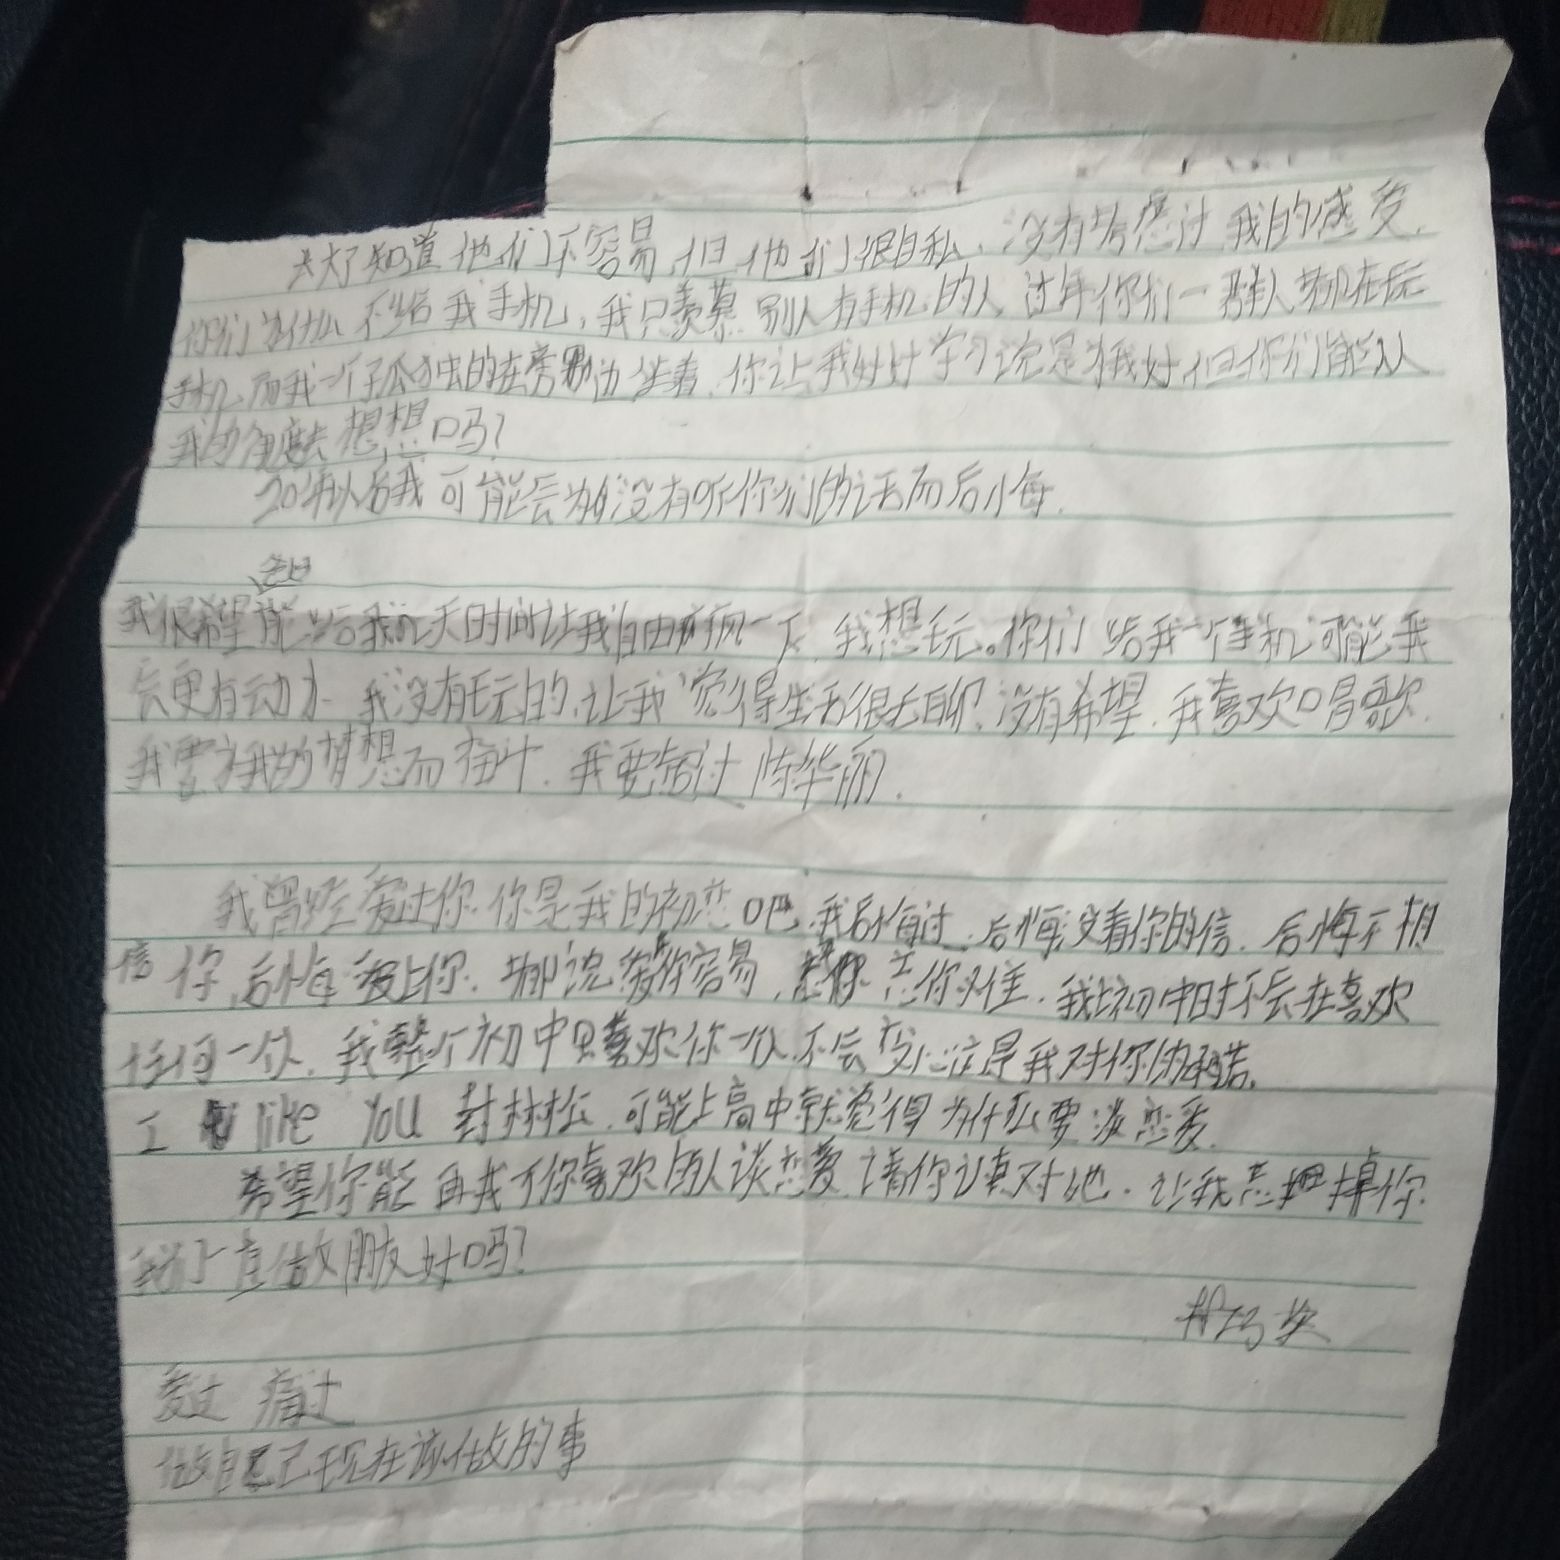 长大了知道他们不容易,但他们很自私,没有考虑过我的感受.
你们为什么不给我手机,我只羡慕别人有手机的人,过年你们一群人都在玩
手机,而我一个孤独的在旁边坐着.你让我好好学习说是为我好,但你们能从
我的角度去想想吗?
20年以后我可能会为没有听你们的话而后悔.
我很希望能给我几天时间让我自由疯一下,我想玩。你们给我一个手机可能我
会更有动力.我没有玩的,让我觉得生活很无聊,没有希望.我喜欢唱歌.
我要为我的梦想而奋斗.我要超过陈华丽.
我曾经爱过你.你是我的初恋吧,我后悔过.后悔没看你的信.后悔不相
信你,后悔爱上你.都说爱你容易,忘你难.我上初中时不会在喜欢
任何一个人.我整个初中只喜欢你一个人.不会变心,这是我对你的承诺.
I like You 封林松.可能上高中就觉得为什么要谈恋爱.
希望你能再找个你喜欢的人谈恋爱,请你认真对她.让我忘掉你
我们一直做朋友好吗?
爱过 痛过
做自己现在该做的事